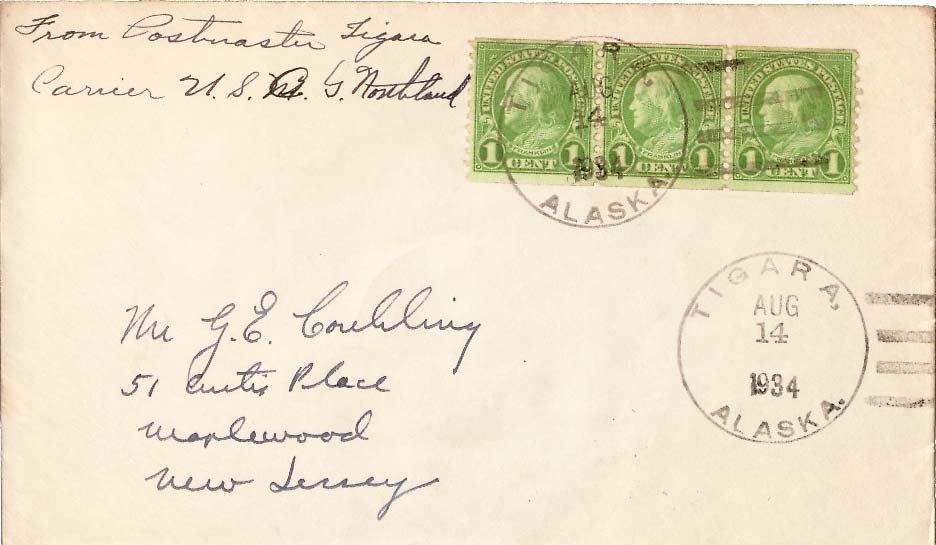 From Postmaster Tigara
Carrier U. S. G. Northland
UNITED STATES POSTAGE UNITED STATES POSTAGE UNITED STATES POSTAGE
FRANKLIN FRANKLIN FRANKLIN
1 CENT 1 1 CENT 1 1 CENT 1
TIGARA,
AUG
14
1934
ALASKA.
Mr G. E.
51 Curtis Place
Maplewood
New Jersey
TIGARA,
AUG
14
1934
ALASKA.